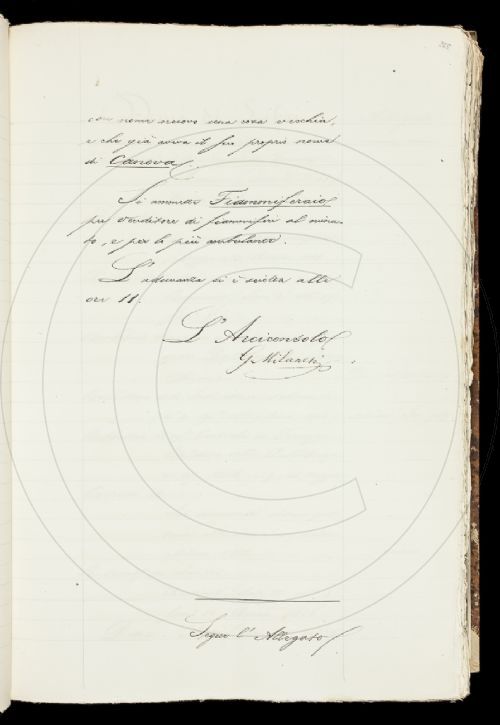 con nome nuovo una cosa vecchia,
e che già aveva il suo proprio nome
di Canova.
Si ammette Fiammiferaio
per venditore di fiammiferi al minu-
to, e per lo più ambulante.
L'adunanza si è sciolta alle
ore 11.
L'Arciconsolo
G Milanesi
Segue l'Allegato